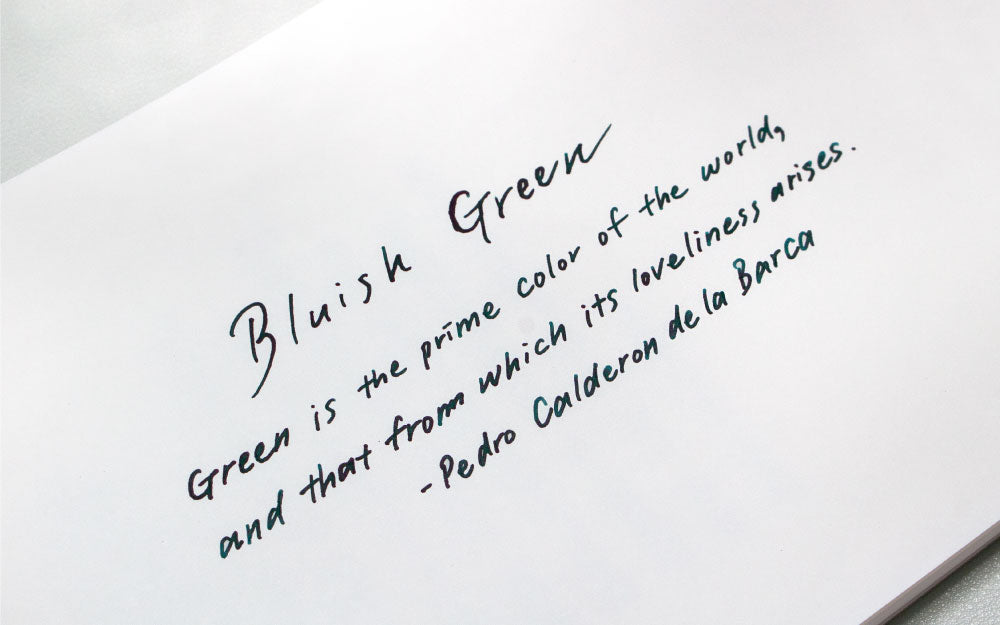 Bluish Green
Green is the prime color of the world,
and that from which its loveliness arises.
-Pedro Calderon de la Barca